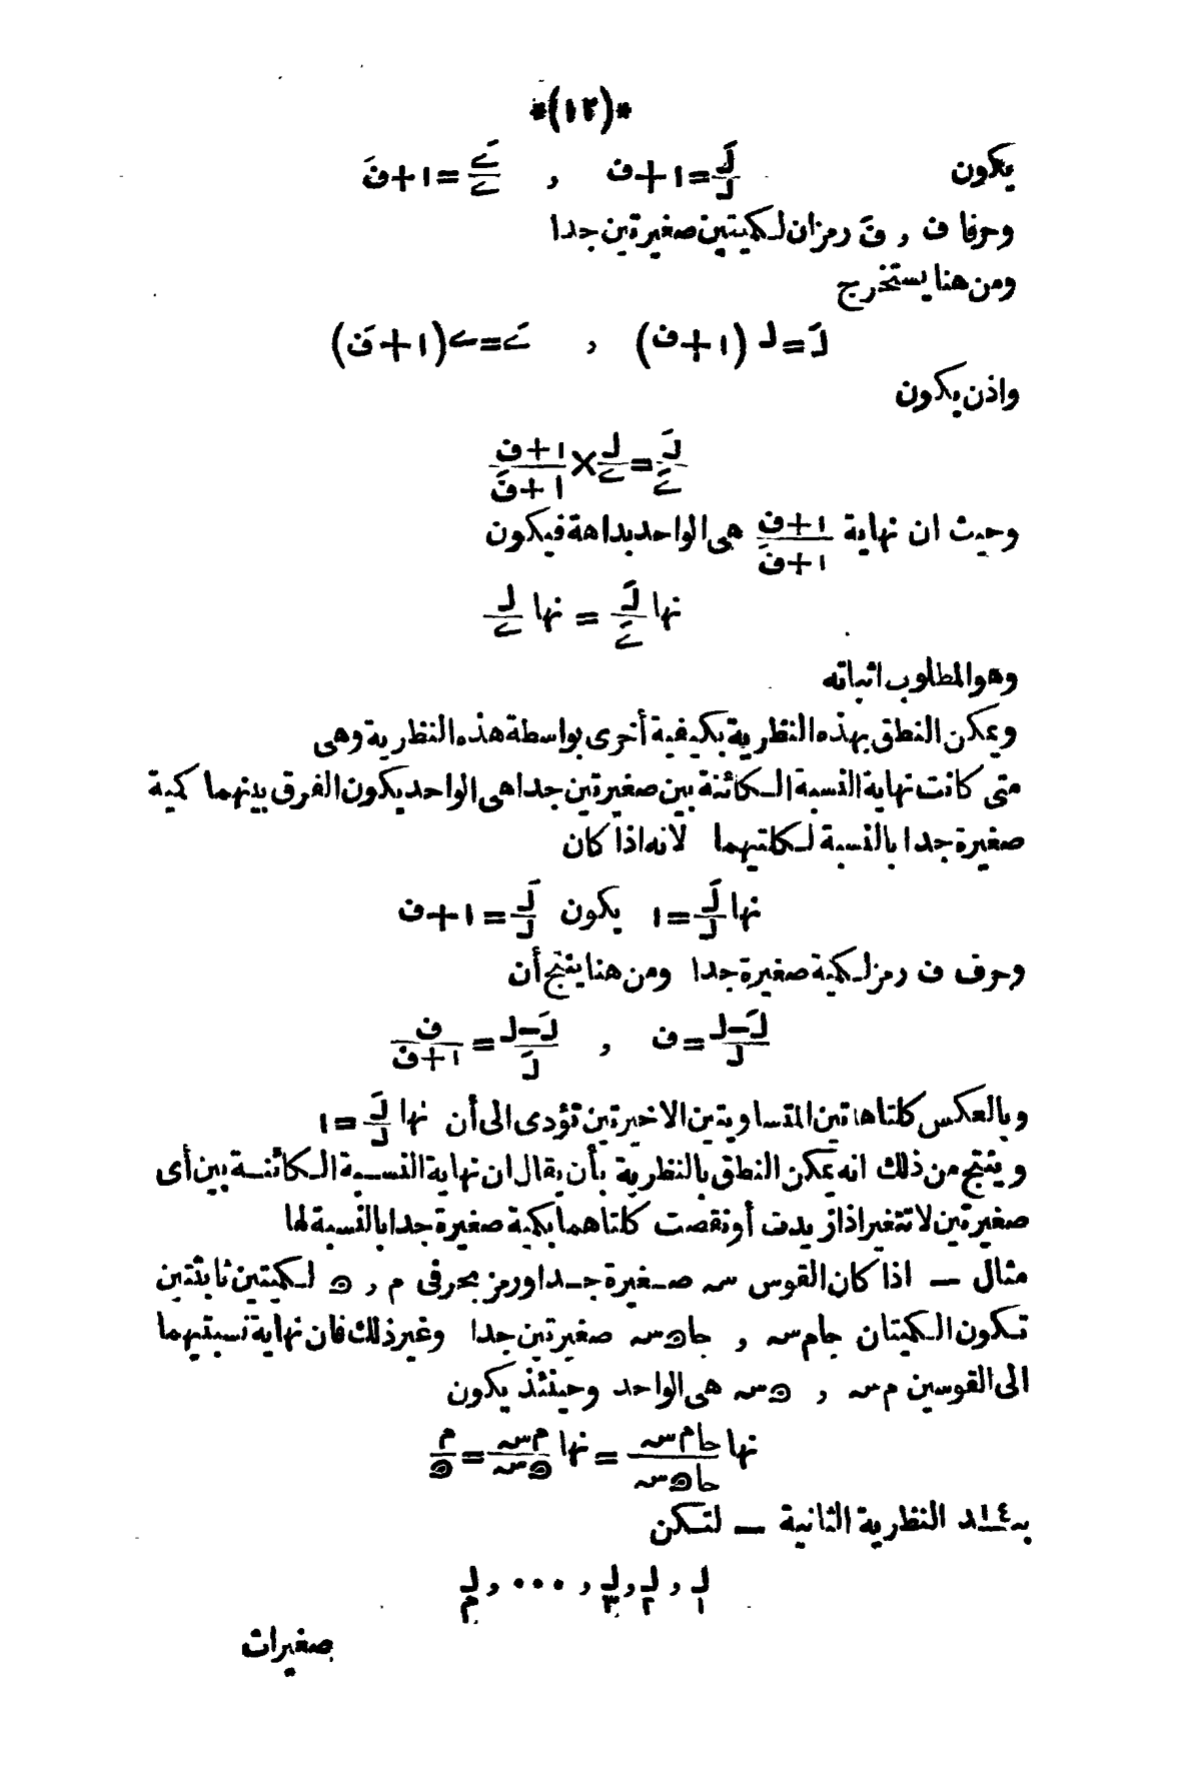 *(١٢)*
يكون لَـ/لـ = ١ + ف , ےَ/ے = ١ + فَ
وحرفا ف , فَ رمزان لكميتين صغيرتين جدا
ومن هنا يستخرج
لَـ = لـ (١ + ف) , ےَ = ے (١ + فَ)
واذن يكون
لَـ/ےَ = لـ/ے × (١ + ف)/(١ + فَ)
وحيث ان نهاية (١ + ف)/(١ + فَ) هى الواحد بداهة فيكون
نها لَـ/ےَ = نها لـ/ے
وهو المطلوب اثباته
ويمكن النطق بهذه النظرية بكيفية أخرى بواسطة هذه النظرية وهى
متى كانت نهاية النسبة الكائنة بين صغيرتين جدا هى الواحد يكون الفرق بينهما كمية
صغيرة جدا بالنسبة لكلتيهما لانه اذا كان
نها لَـ/لـ = ١ يكون لَـ/لـ = ١ + ف
وحرف ف رمز لكمية صغيرة جدا ومن هنا ينتج أن
(لَـ − لـ)/لـ = ف , (لَـ − لـ)/لَـ = ف/(١ + ف)
وبالعكس كلتا هاتين المتساويتين الاخيرتين تؤدى الى أن نها لَـ/لـ = ١
وينتج من ذلك انه يمكن النطق بالنظرية بأن يقال ان نهاية النسبة الكائنة بين أى
صغيرتين لا تتغير اذا زيدت أو نقصت كلتاهما بكمية صغيرة جدا بالنسبة لها
مثال — اذا كان القوس سہ صغيرة جدا ورمز بحرفى م , ﻫ لكميتين ثابتتين
تكون الكميتان جا م سہ , جا ﻫ سہ صغيرتين جدا وغير ذلك فان نهاية نسبتيهما
الى القوسين م سہ , ﻫ سہ هى الواحد وحينئذ يكون
نها (جا م سہ)/(جا ﻫ سہ) = نها (م سہ)/(ﻫ سہ) = م/ﻫ
بـ١٤ـد النظرية الثانية — لتكن
لـ١ , لـ٢ , لـ٣ , ٠٠٠ , لـم
صغيرات